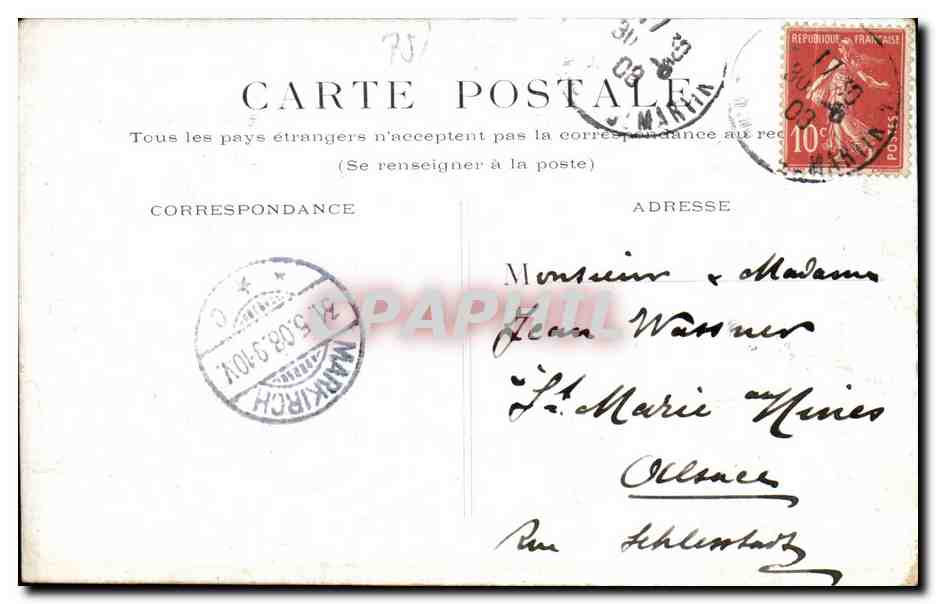 75
CARTE POSTALE
Tous les pays étrangers n'acceptent pas la correspondance au
(Se renseigner à la poste)
CORRESPONDANCE
ADRESSE
REPUBLIQUE FRANCAISE
10c
POSTES
30
08
ST MARTIN
MARTIN
MARKIRCH
31.5.08.9-10V.
C
CPAPHIL
Monsieur & Madame
Jean Wassner
à St. Marie au Mines
Allsace
Rue Schlesstadt